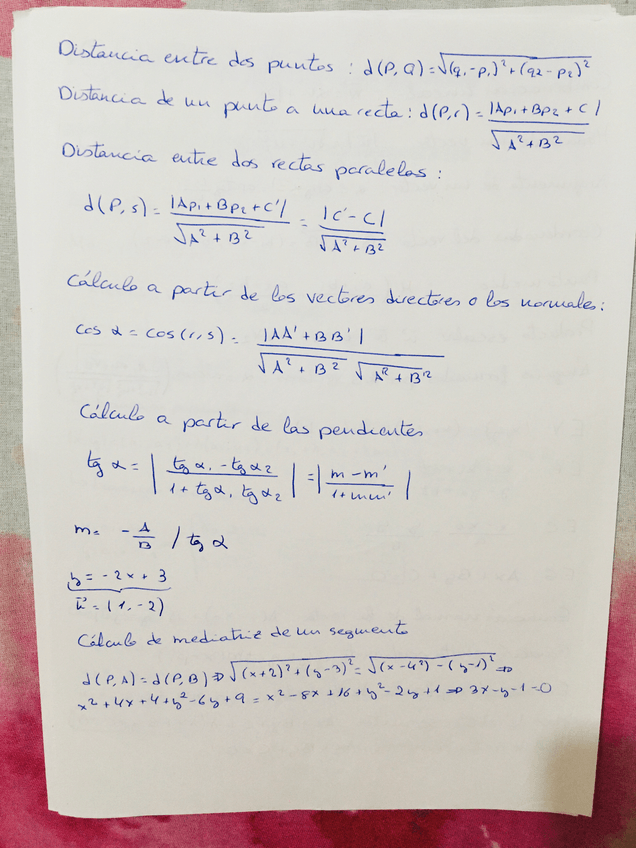 Distancia entre dos puntos : d(P,Q) = √(q₁-p₁)²+(q₂-p₂)²
Distancia de un punto a una recta: d(P,r) = |Ap₁+Bp₂+C| / √A²+B²
Distancia entre dos rectas paralelas :
d(P,s) = |Ap₁+Bp₂+C'| / √A²+B² = |C'-C| / √A²+B²
Cálculo a partir de los vectores directores o los normales:
cos α = cos(r,s) = |AA'+BB'| / √A²+B² √A'²+B'²
Cálculo a partir de las pendientes
tg α = | tg α₁ - tg α₂ / 1 + tg α₁ tg α₂ | = | m-m' / 1+mm' |
m = - A/B / tg α
y = -2x + 3
u⃗ = (1, -2)
Cálculo de mediatriz de un segmento
d(P,A) = d(P,B) ⇒ √(x+2)²+(y-3)² = √(x-4²)-(y-1)² ⇒
x²+4x+4+y²-6y+9 = x²-8x+16+y²-2y+1 ⇒ 3x-y-1=0